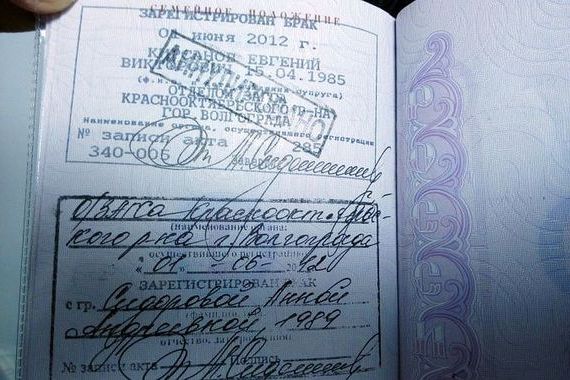 СЕМЕЙНОЕ ПОЛОЖЕНИЕ
ЗАРЕГИСТРИРОВАН БРАК
01 июня 2012 г.
ЕВГЕНИЙ
15.04.1985
ОТДЕЛОМ
КРАСНООКТЯБРЬСКОГО Р-НА
ГОР. ВОЛГОГРАДА
Наименование органа, осуществившего регистрацию
№ записи акта 285
340-006
о/ЗАГСа Краснооктябрьс-
кого р-на г. Волгограда
(наименование органа)
осуществившего регистрацию
"01" 06
ЗАРЕГИСТРИРОВАН БРАК
с гр. Сидоровой Анной
Андреевной, 1989
отчество, дата рождения
№ записи акта Подпись